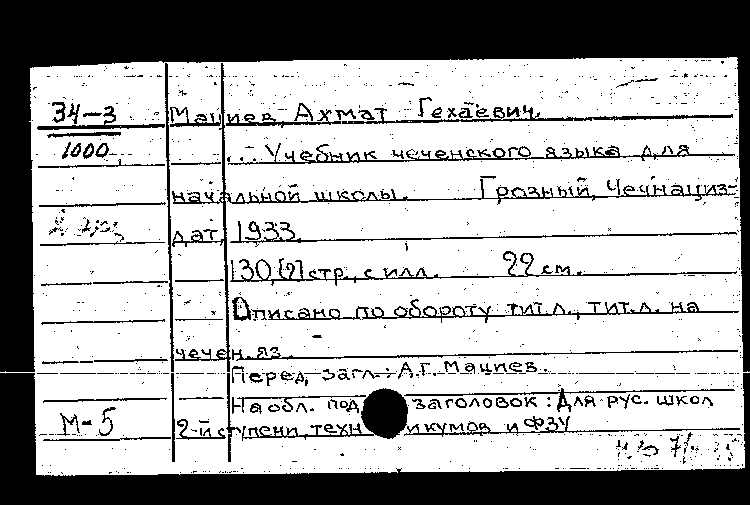 34-3 Мациев, Ахмат Гехаевич.
1000. ... Учебник чеченского языка для
начальной школы. Грозный, Чечнациз-
дат, 1933.
130, [2] стр., с илл. 22 см.
Описано по обороту тит.л., тит.л. на
чечен. яз.
Перед загл.: А.Г. Мациев.
На обл. подзаголовок: Для рус. школ
М-5 2-й ступени, техникумов и ФЗУ